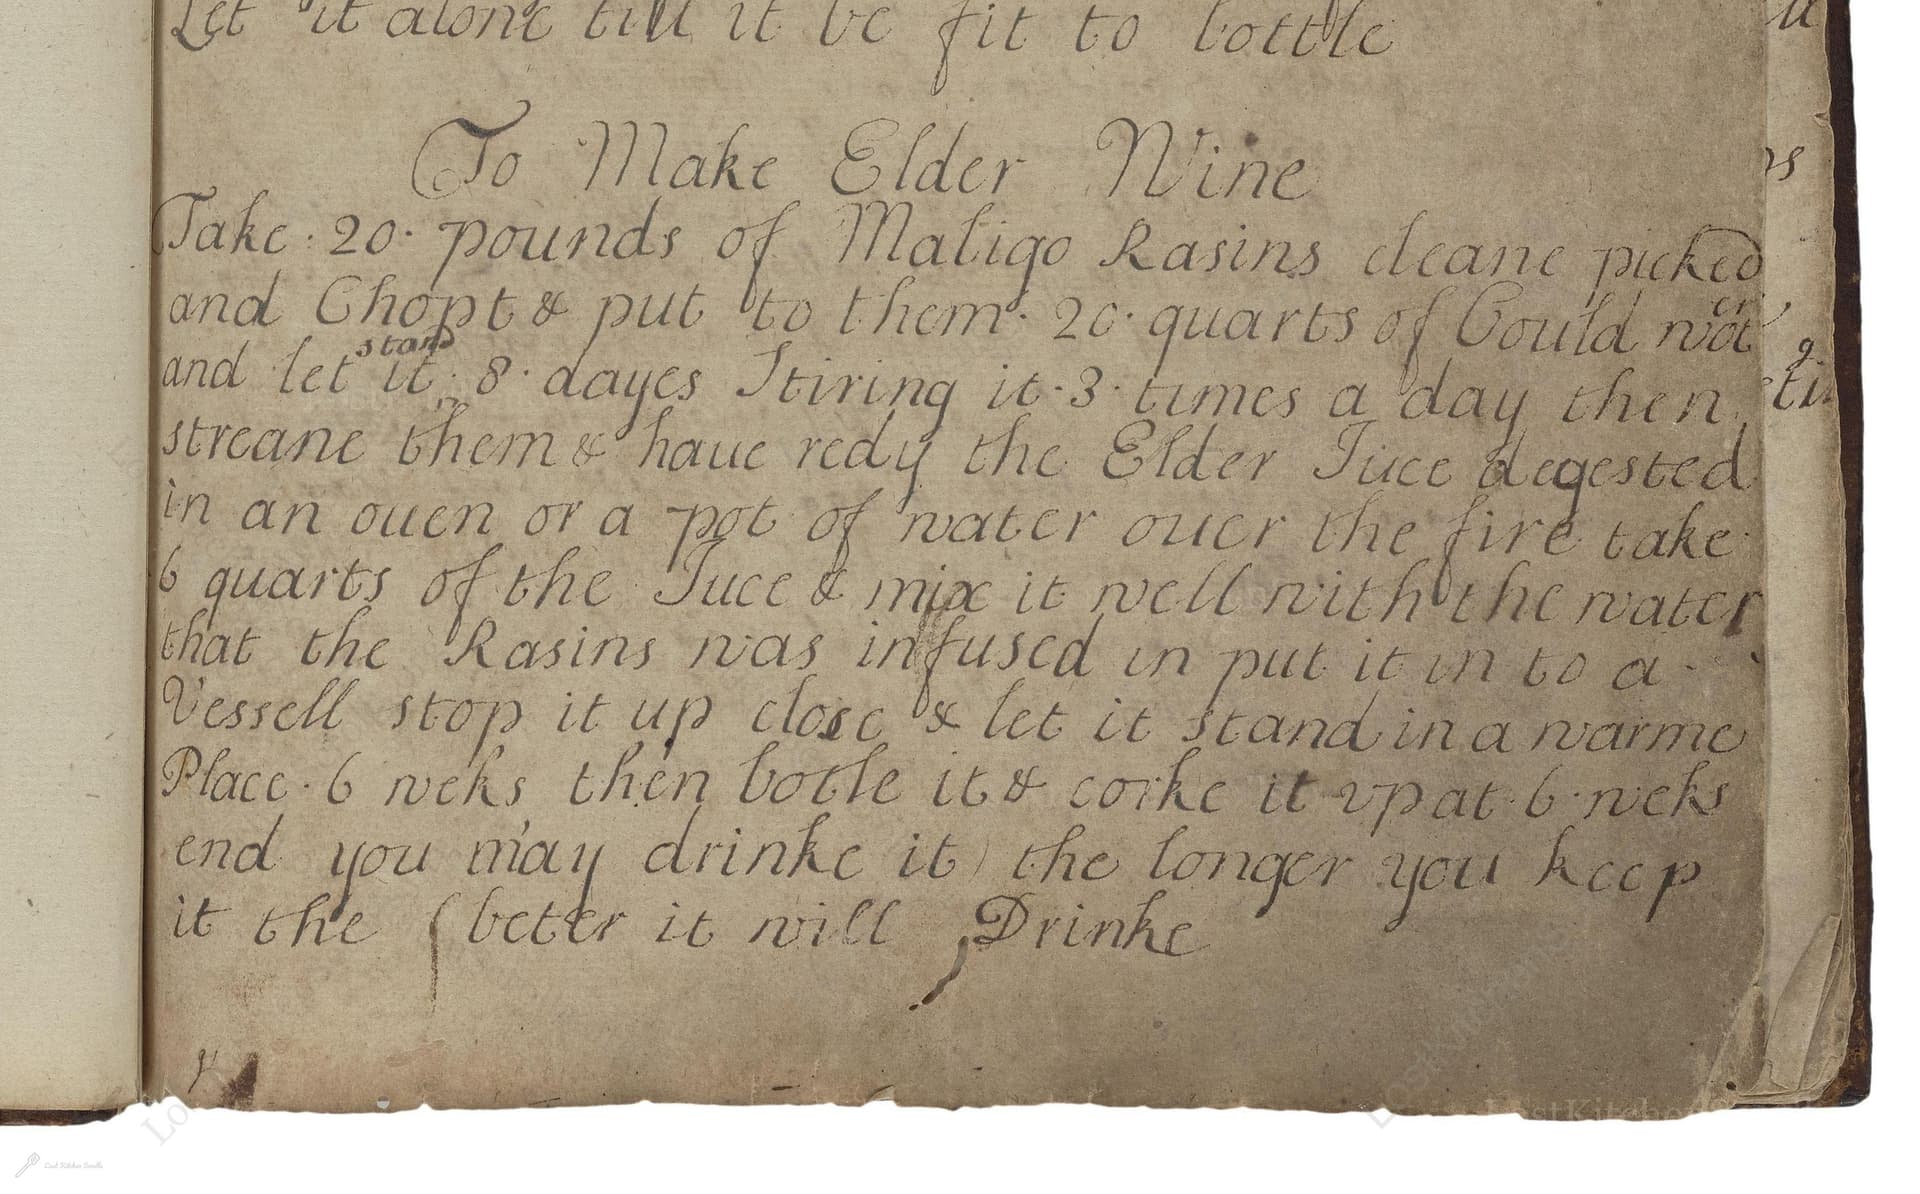 Let it alone till it be fit to bottle
To Make Elder Wine
Take · 20 · pounds of Maligo Rasins cleane picked
and Chopt & put to them · 20 · quarts of Could wat er
and let it stand · 8 · dayes Stiring it · 3 · times a day then
streane them & haue redy the Elder Juce degested
in an ouen or a pot of water ouer the fire take
6 quarts of the Juce & mix it well with the water
that the Rasins was infused in put it in to a
Vessell stop it up close & let it stand in a warme
Place · 6 weks then botle it & corke it vp at · 6 · weks
end you may drinke it the longer you keep
it the beter it will Drinke
Lost Kitchen Scrolls